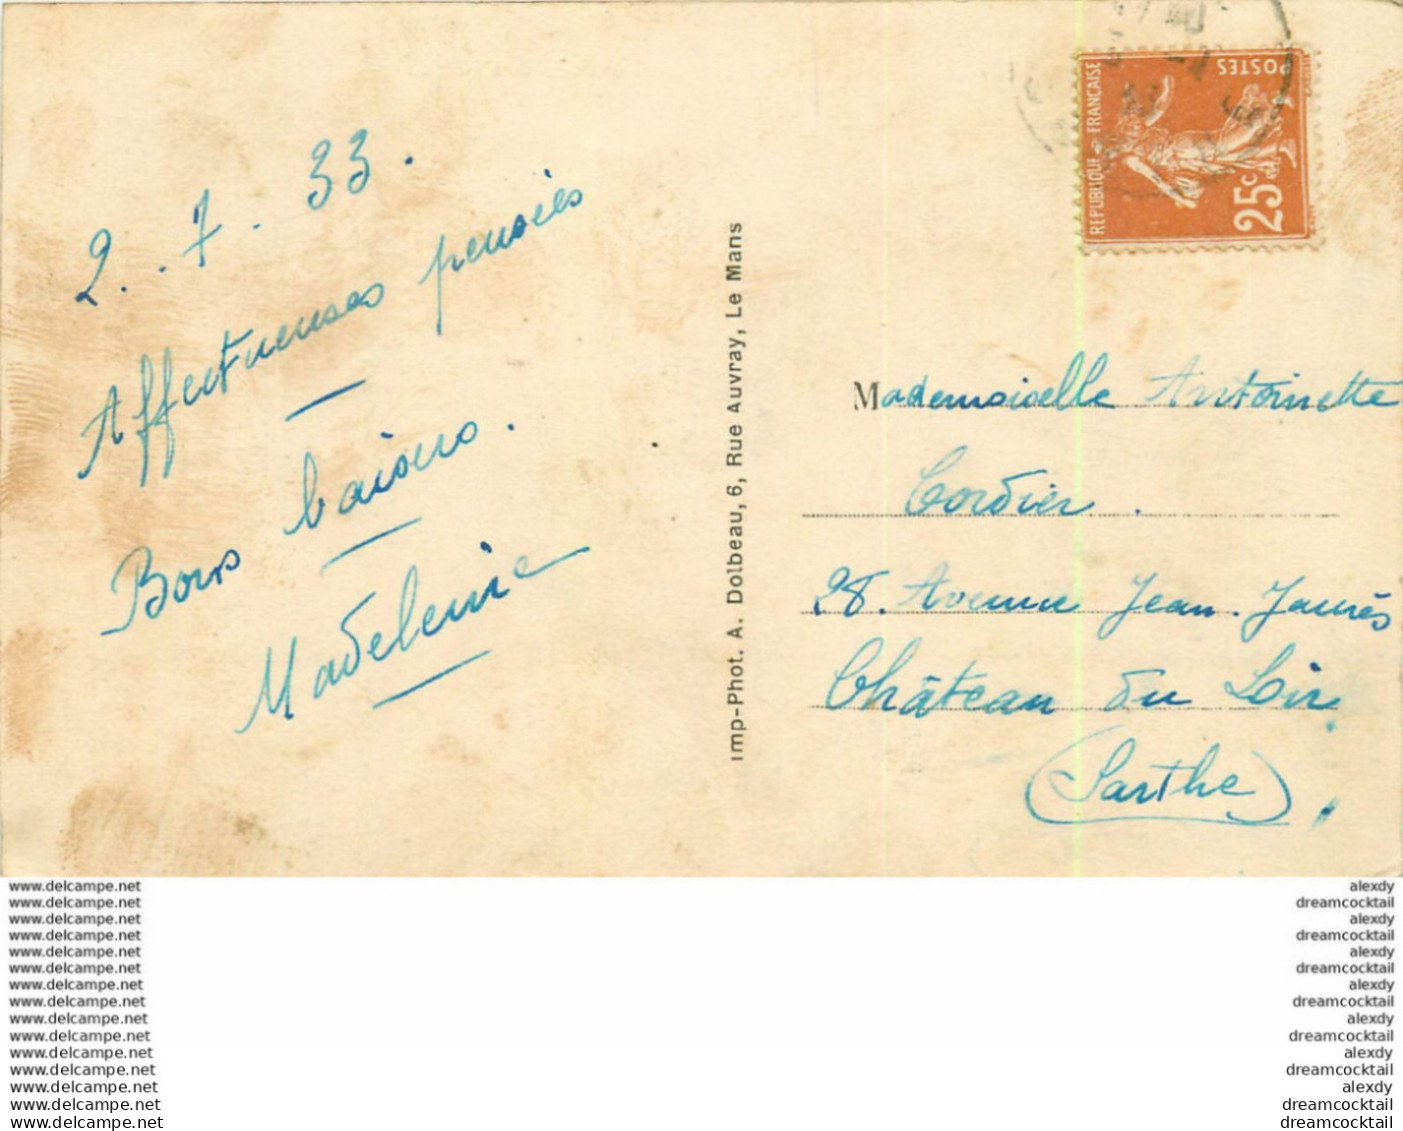 2.. 7. 33.
Affectueuses pensées
Bons baisers.
Madeleine
Imp-Phot. A. Dolbeau, 6, Rue Auvray, Le Mans
RÉPUBLIQUE FRANÇAISE
POSTES
25c
Mademoiselle Antoinette
Cordier.
28. Avenue Jean. Jaurès
Château du Loir
(Sarthe)
www.delcampe.net alexdy
www.delcampe.net dreamcocktail
www.delcampe.net alexdy
www.delcampe.net dreamcocktail
www.delcampe.net alexdy
www.delcampe.net dreamcocktail
www.delcampe.net alexdy
www.delcampe.net dreamcocktail
www.delcampe.net alexdy
www.delcampe.net dreamcocktail
www.delcampe.net alexdy
www.delcampe.net dreamcocktail
www.delcampe.net alexdy
www.delcampe.net dreamcocktail
www.delcampe.net dreamcocktail